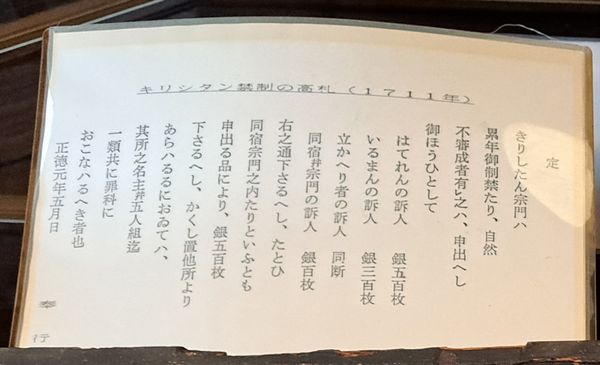 キリシタン禁制の高札（１７１１年）
定
きりしたん宗門ハ
累年御制禁たり、自然
不審成者有之ハ、申出へし
御ほうひとして
はてれんの訴人　銀五百枚
いるまんの訴人　銀三百枚
立かへり者の訴人　同断
同宿并宗門の訴人　銀百枚
右之通下さるへし、たとひ
同宿宗門之内たりといふとも
申出る品により、銀五百枚
下さるへし、かくし置他所より
あらハるるにおゐてハ、
其所之名主并五人組迄
一類共に罪科に
おこなハるへき者也
正徳元年五月日
奉行